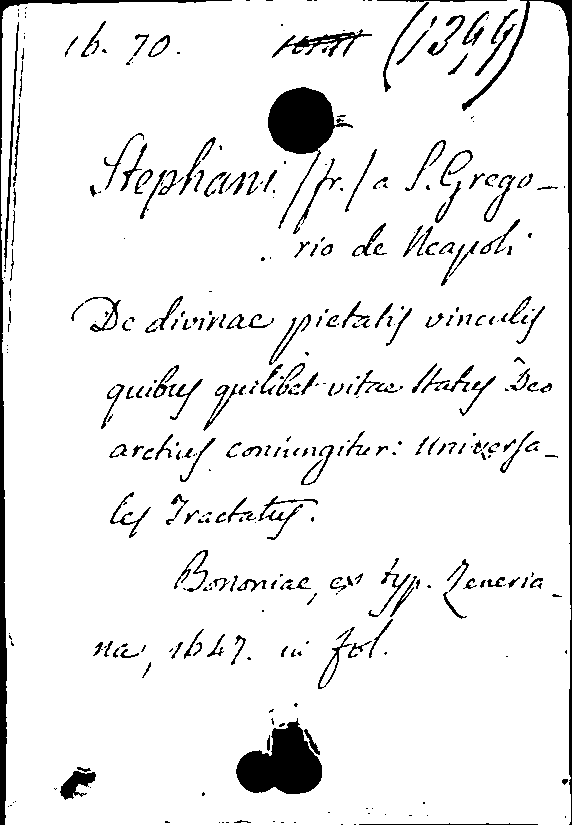 16. 70. (1399)
Stephani /fr./ a S. Grego-
rio de Neapoli
De divinae pietatis vinculis
quibus quilibet vitae status Deo
arctius coniungitur: Universa-
les Tractatus.
Bononiae, ex typ. Zeneria-
na, 1647. in fol.